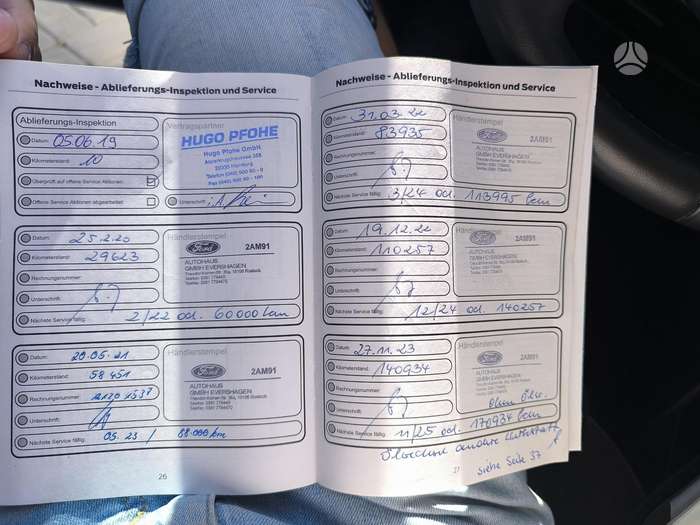 Nachweise - Ablieferungs-Inspektion und Service
Ablieferungs-Inspektion
Datum: 05.06.19
Kilometerstand: 10
Überprüft auf offene Service Aktionen:
Offene Service Aktionen abgearbeitet:
Vertragspartner
HUGO PFOHE
Hugo Pfohe GmbH
Hamburg
Unterschrift:
Datum: 25.2.20
Kilometerstand: 29623
Rechnungsnummer:
Unterschrift:
Nächste Service fällig: 2/22 od. 60.000 km
Händlerstempel
Ford
2AM91
AUTOHAUS
GMBH EVERSHAGEN
Datum: 20.05.21
Kilometerstand: 58451
Rechnungsnummer:
Unterschrift:
Nächste Service fällig: 05.23 / 88.000 km
Händlerstempel
Ford
2AM91
AUTOHAUS
GMBH EVERSHAGEN
26
Nachweise - Ablieferungs-Inspektion und Service
Datum: 31.03.22
Kilometerstand: 83995
Rechnungsnummer:
Unterschrift:
Nächste Service fällig: 3/24 od. 113995 km
Händlerstempel
Ford
2AM91
AUTOHAUS
GMBH EVERSHAGEN
Datum: 19.12.22
Kilometerstand: 110257
Rechnungsnummer:
Unterschrift:
Nächste Service fällig: 12/24 od. 140257
Händlerstempel
Ford
2AM91
AUTOHAUS
GMBH EVERSHAGEN
Datum: 27.11.23
Kilometerstand: 140934
Rechnungsnummer:
Unterschrift:
Nächste Service fällig: 11/25 od. 170934 km
Händlerstempel
Ford
2AM91
AUTOHAUS
GMBH EVERSHAGEN
Ohne
andere
siehe Seite 37
27